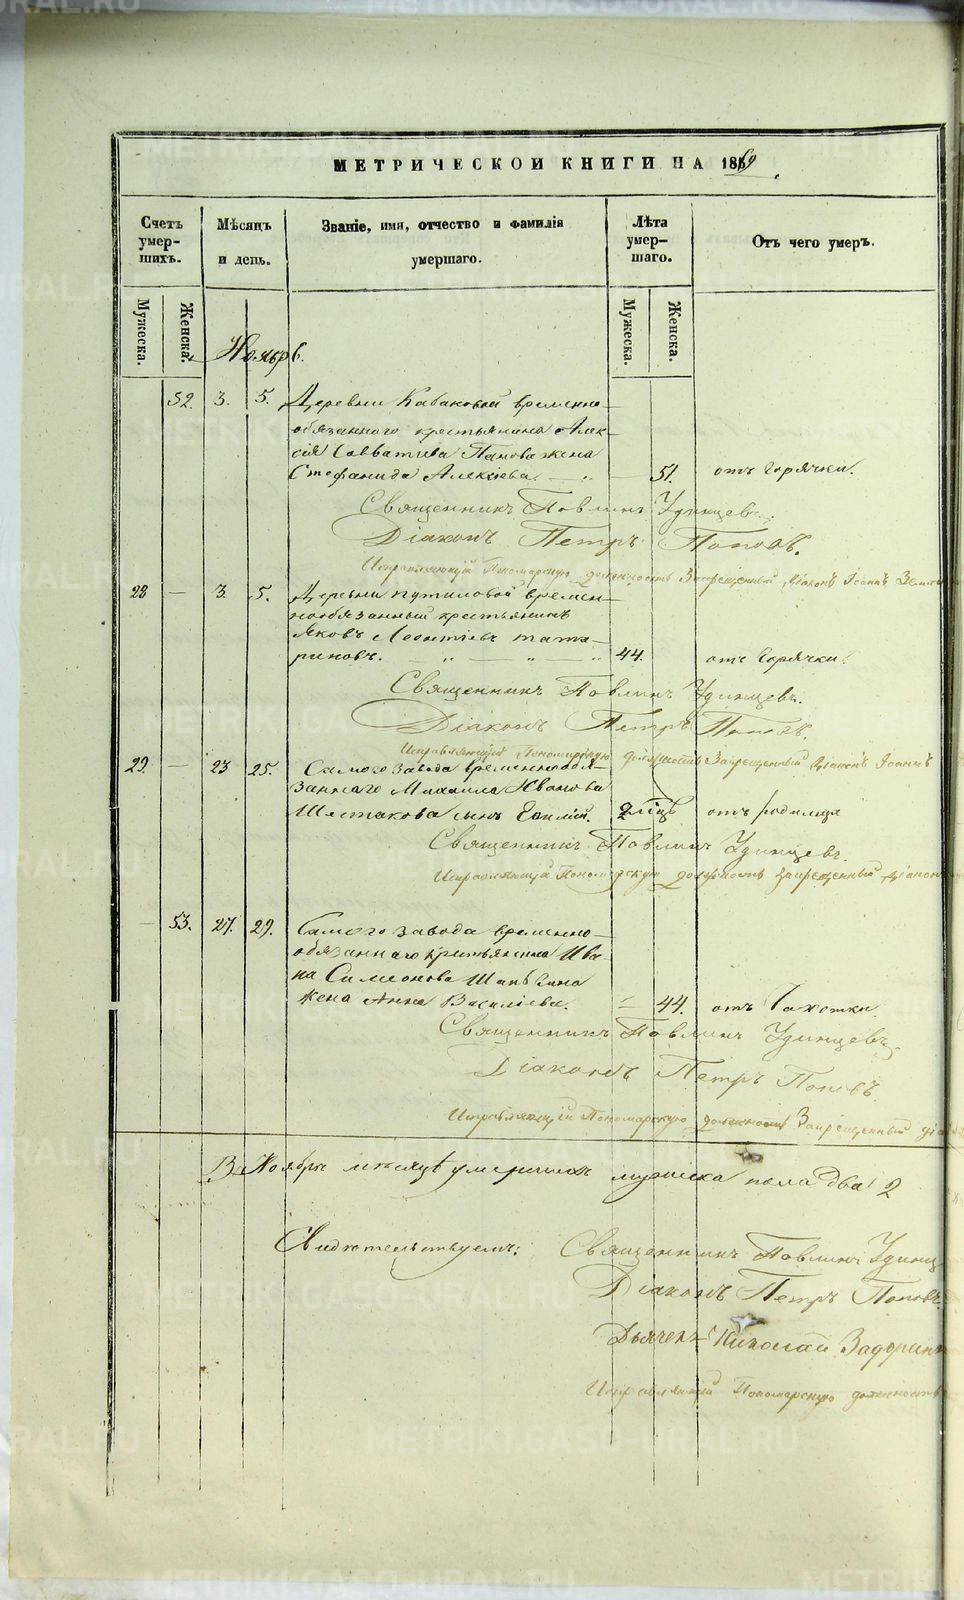 МЕТРИЧЕСКОЙ КНИГИ НА 1869.
Счетъ умер-шихъ.
Мѣсяцъ и день.
Званіе, имя, отчество и фамилія умершаго.
Лѣта умер-шаго.
Отъ чего умеръ.
Мужеска. Женска.
Мужеска. Женска.
Ноябрь.
52. 3. 5. Деревни Кабаковой временно-
обязанного крестьянина Алек-
сія Савватиева Панова жена
Стефанида Алексіева. — „ — 51. отъ горячки.
Священникъ Павлинъ Удинцевъ.
Діаконъ Петръ Поповъ.
Исправляющій Пономарскую должность Запрещенный Діаконъ Іоаннъ
28 — 3. 5. Деревни Путиловой времен-
нообязанный крестьянинъ
Яковъ Леонтіевъ Тата-
риновъ. — „ — „ — „ 44. отъ горячки.
Священникъ Павлинъ Удинцевъ.
Діаконъ Петръ Поповъ.
Исправляющій Пономарскую должность Запрещенный Діаконъ Іоаннъ
29. — 23 25. Самого завода временнообя-
заннаго Михаила Иванова
Шестакова сынъ 2 мѣсц отъ родимца
Священникъ Павлинъ Удинцевъ.
Исправляющій Пономарскую должность Запрещенный Діаконъ
— 53. 27. 29. Самого завода временно-
обязаннаго крестьянина Ива-
на Симеонова
жена Анна Василіева. — 44. отъ Чахотки
Священникъ Павлинъ Удинцевъ
Діаконъ Петръ Поповъ.
Исправляющій Пономарскую должность Запрещенный діа
В Ноябрѣ мѣсяцѣ умершихъ мужеска пола два 2
Свидѣтельствуемъ: Священникъ Павлинъ Удинц
Діаконъ Петръ Поповъ.
Дьячекъ Николай Задорин
Исправляющій Пономарскую должность
METRIKI.GASO-URAL.RU